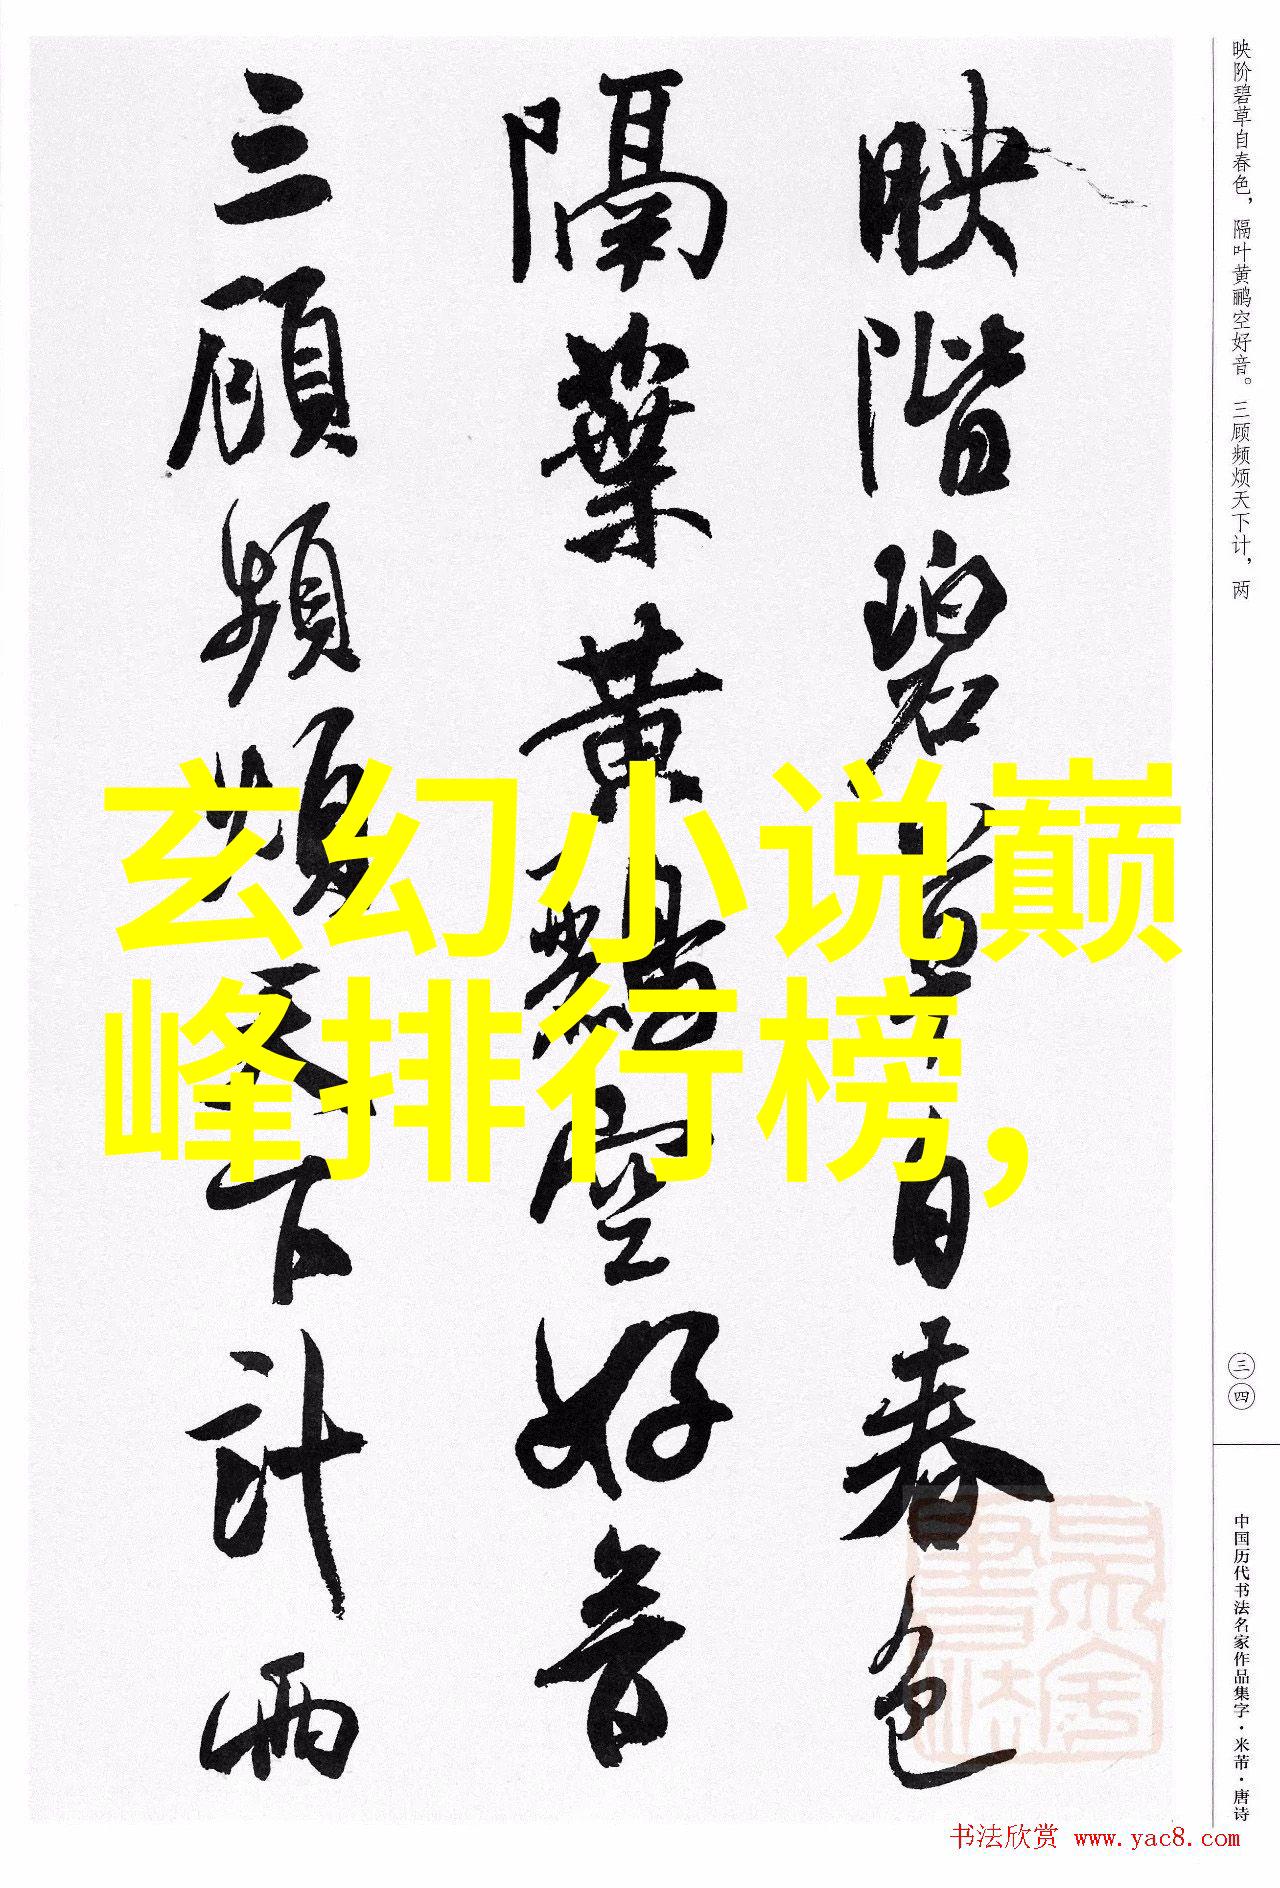 映阶碧草自春色，隔叶黄鹂空好音。三顾频烦天下计，两
映階碧草自春色
隔葉黄鸝空好音
三顧頻煩天下計兩
玄幻小说巅
峰排行榜，
三四
中国历代书法名家作品集字·米芾·唐诗
书法欣赏 www.yac8.com